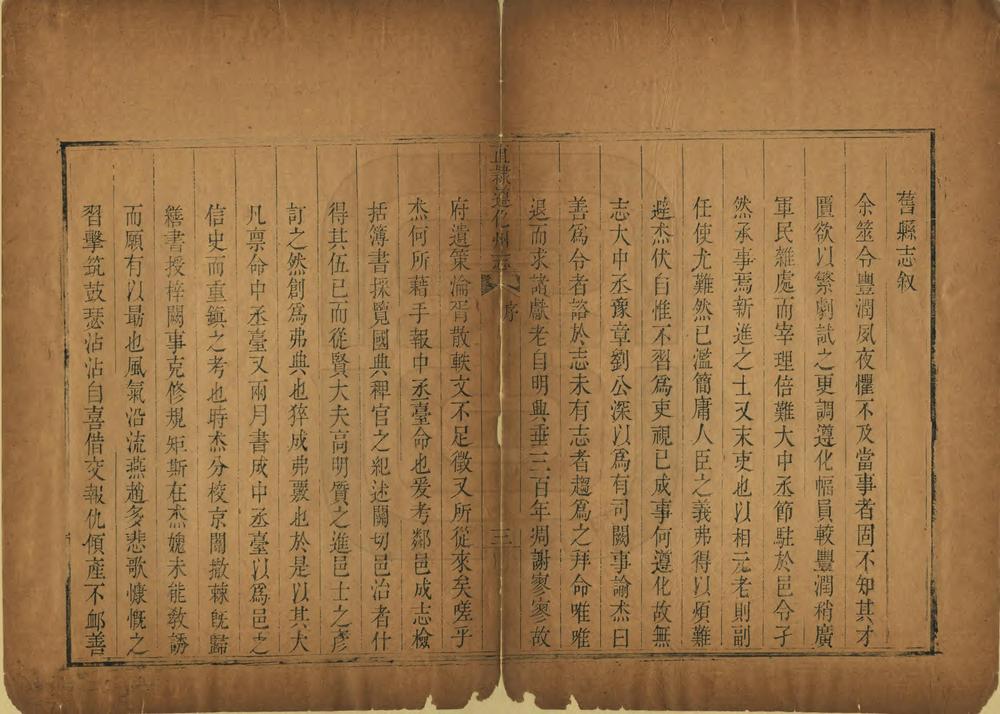 舊縣志叙
余筮令豐潤夙夜懼不及當事者固不知其才
匱欲以繁劇試之更調遵化幅員較豐潤稍廣
軍民雜處而宰理倍難大中丞節駐於邑令孑
然承事焉新進之士又末吏也以相元老則副
任使尤難然已濫簡庸人臣之義弗得以煩難
避杰伏自惟不習爲吏視已成事何遵化故無
志大中丞豫章劉公深以爲有司闕事諭杰曰
善爲令者諮於志未有志者趨爲之拜命唯唯
退而求諸獻老自明興垂三百年凋謝寥寥故
直隸遵化州志
序
三
府遺策淪胥散軼文不足徵又所從來矣嗟乎
杰何所藉手報中丞臺命也爰考鄰邑成志檢
括簿書採覽國典稗官之紀述關切邑治者什
得其伍已而從賢大夫高明質之進邑士之彥
訂之然創爲弗典也猝成弗覈也於是以其大
凡禀命中丞臺又兩月書成中丞臺以爲邑之
信史而重鎮之考也時杰分校京闈撤棘旣歸
繕書授梓闕事克修規矩斯在杰媿未能敎誘
而願有以朂也風氣沿流燕趙多悲歌慷慨之
習擊筑鼓瑟沾沾自喜借交報仇傾產不䘏善